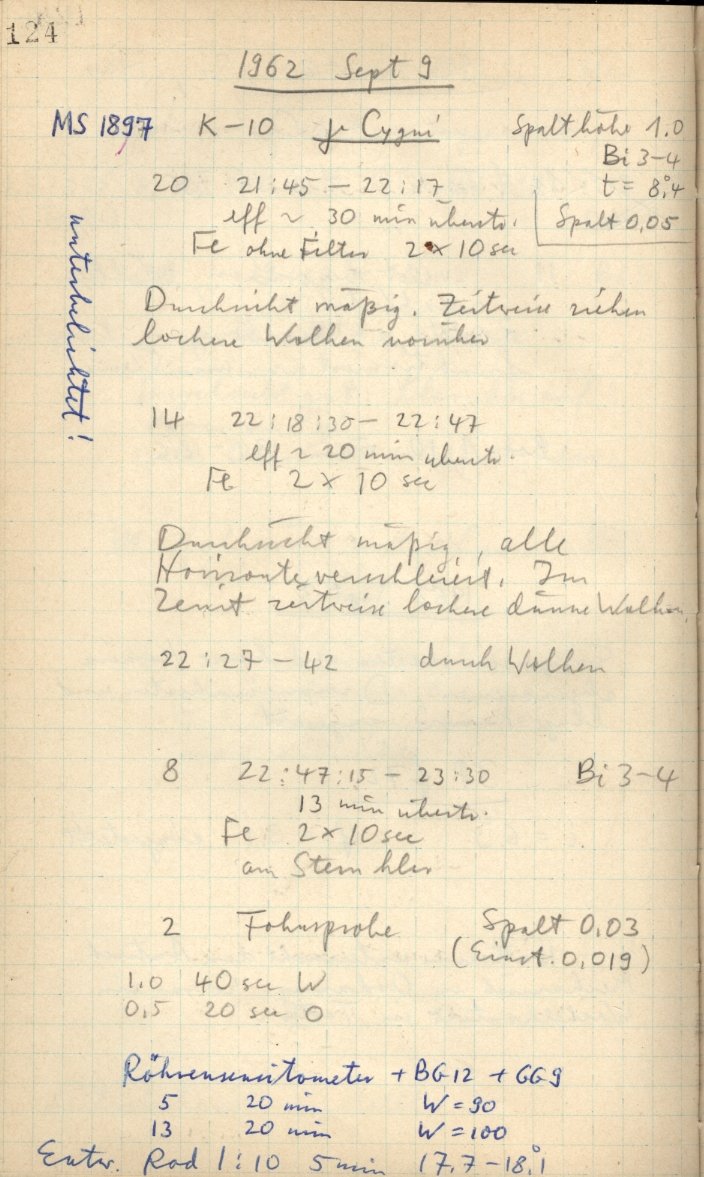 124
1962 Sept 9
MS 1897 K-10 μ Cygni Spalthöhe 1.0
Bi 3-4
20 21:45 - 22:17 t = 8°,4
eff ~ 30 min überstr. Spalt 0,05
Fe ohne Filter 2 x 10 sec
unterbelichtet!
Durchsicht mäßig. Zeitweise ziehen
lockere Wolken vorüber
14 22:18:30 - 22:47
eff ~ 20 min überstr.
Fe 2 x 10 sec
Durchsicht mäßig, alle
Horizonte verschleiert. Im
Zenit zeitweise lockere dünne Wolken.
22:27 - 42 durch Wolken
8 22:47:15 - 23:30 Bi 3-4
13 min überstr.
Fe 2 x 10 sec
am Stern klar
2 Fokusprobe Spalt 0,03
(Einst. 0,019)
1.0 40 sec W
0,5 20 sec O
Röhrensensitometer + BG12 + GG9
5 20 min W = 90
13 20 min W = 100
Entw. Rod 1:10 5 min 17,7 - 18°,1